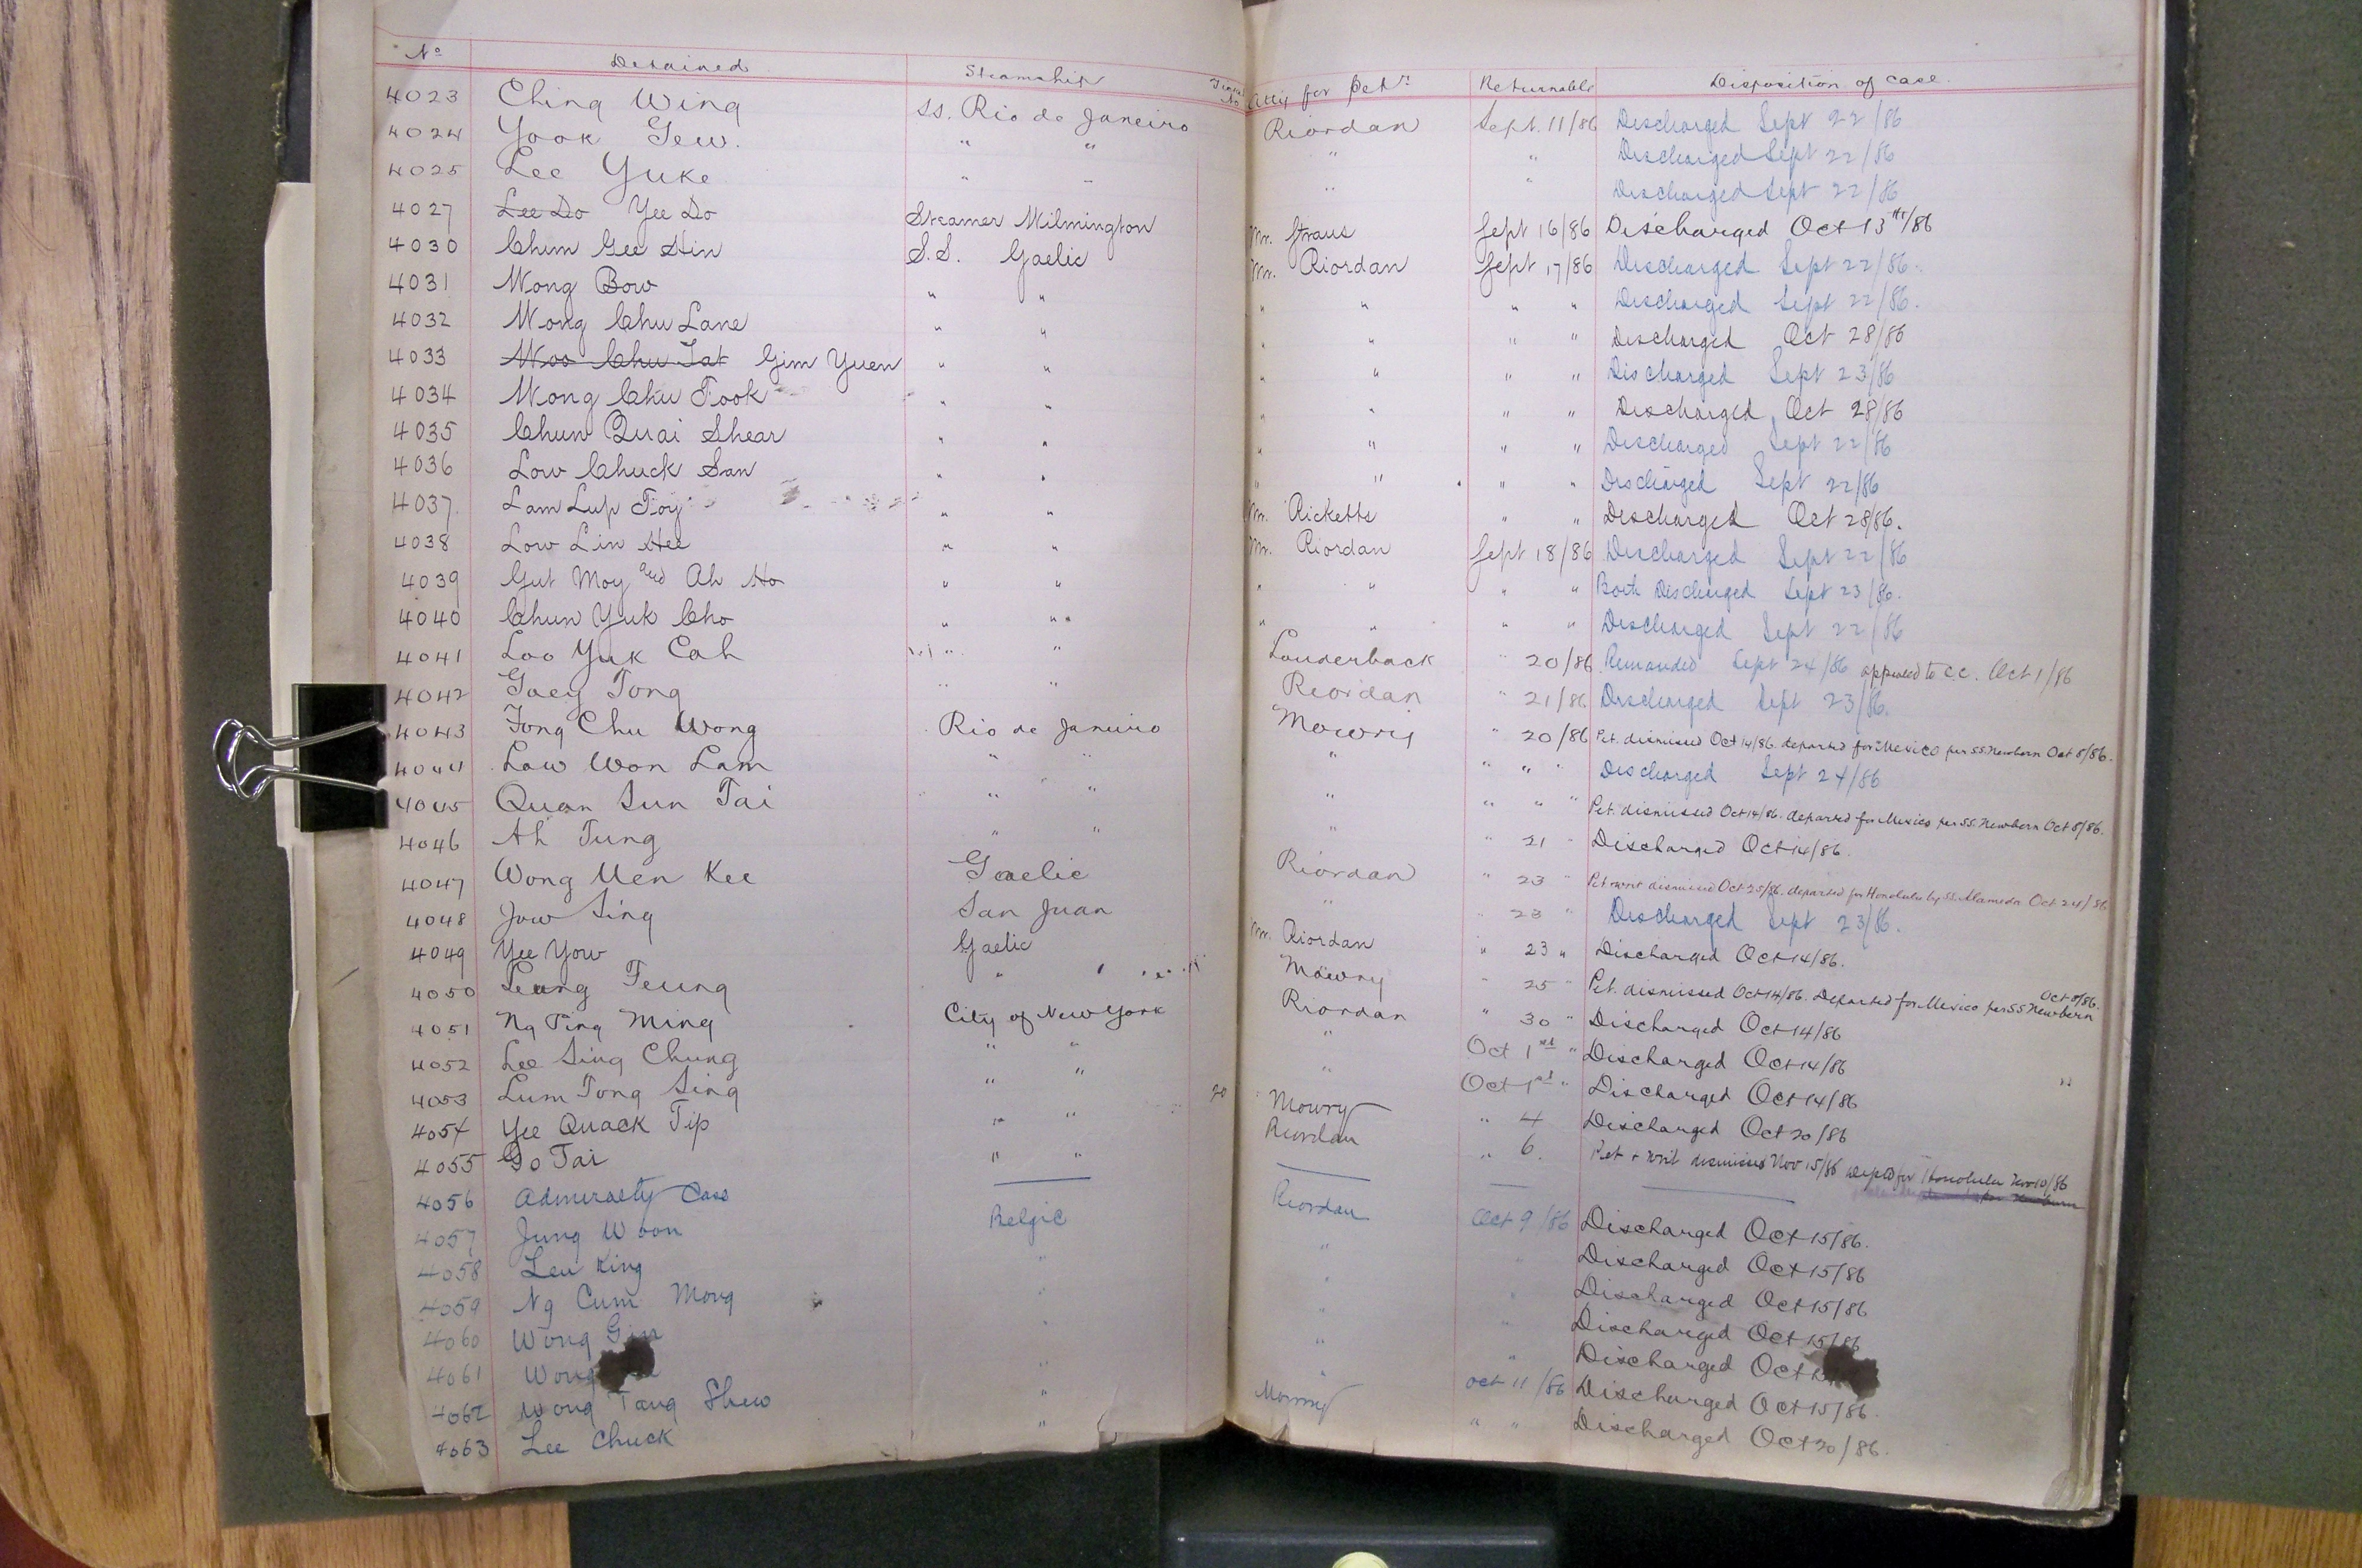 No Detained Steamship Attys for Petr Returnable Disposition of case.
4023 Ching Wing SS. Rio de Janeiro Riordan Sept. 11/86 Discharged Sept 22/86
4024 Yook Gew. " " " " Discharged Sept 22/86
4025 Lee Yuke " " " " Discharged Sept 22/86
4027 Lee Do Yee Do Steamer Wilmington Mr. Straus Sept 16/86 Discharged Oct 13th/86
4030 Chum Gee Hin S.S. Gaelic Mr. Riordan Sept 17/86 Discharged Sept 22/86.
4031 Wong Bow " " " " " " Discharged Sept 22/86.
4032 Wong Chu Lane " " " " " " Discharged Oct 28/86
4033 Woo Chu Tat Gim Yuen " " " " " " Discharged Sept 23/86
4034 Wong Chu Fook " " " " " " Discharged Oct 28/86
4035 Chun Quai Shear " " " " " " Discharged Sept 22/86
4036 Low Chuck San " " " " " " Discharged Sept 22/86
4037 Lam Lup Foy " " Mr. Ricketts " " Discharged Oct 28/86.
4038 Low Lin Hee " " Mr. Riordan Sept 18/86 Discharged Sept 22/86
4039 Gut Moy and Ah Ho " " " " " " Both Discharged Sept 23/86.
4040 Chun Yuk Cho " " " " " " Discharged Sept 22/86
4041 Loo Yuk Cah " " Louderback " 20/86 Remanded Sept 24/86 appealed to C.C. Oct 1/86
4042 Goey Tong " " Riordan " 21/86 Discharged Sept 23/86.
4043 Fong Chu Wong Rio de Janeiro Mowry " 20/86 Pet. dismissed Oct 14/86. departed for Mexico per SS. Newbern Oct 8/86.
4044 Low Won Lam " " " " " " Discharged Sept 24/86
4045 Quan Sun Tai " " " " " " Pet. dismissed Oct 14/86. departed for Mexico per SS. Newbern Oct 8/86.
4046 Ah Tung " " " " 21 " Discharged Oct 14/86.
4047 Wong Uen Kee Gaelic Riordan " 23 " Pet & writ dismissed Oct 25/86. departed for Honolulu by SS. Alameda Oct 24/86
4048 Jow Sing San Juan " " 23 " Discharged Sept 23/86.
4049 Yee Yow Gaelic Mr. Riordan " 23 " Discharged Oct 14/86.
4050 Leung Teung " Mowry " 25 " Pet. dismissed Oct 14/86. Departed for Mexico per SS Newbern Oct 8/86.
4051 Ng Ping Ming City of New York Riordan " 30 " Discharged Oct 14/86
4052 Lee Sing Chung " " " Oct 1st " Discharged Oct 14/86
4053 Lum Tong Sing " " " Oct 1st " Discharged Oct 14/86
4054 Yee Quack Tip " " 20 Mowry " 4 Discharged Oct 20/86
4055 Go Tai " " Riordan " 6. Pet & writ dismissed Nov 15/86 depd for Honolulu Nov 10/86
4056 Admiralty Case
4057 Jung Woon Belgic Riordan Oct 9/86 Discharged Oct 15/86.
4058 Leu King " " " Discharged Oct 15/86
4059 Ng Cum Mong " " " Discharged Oct 15/86
4060 Wong Gim " " " Discharged Oct 15/86
4061 Wong " " " Discharged Oct
4062 Wong Tang Shew " Mowry Oct 11/86 Discharged Oct 15/86.
4063 Lee Chuck " " " Discharged Oct 20/86.